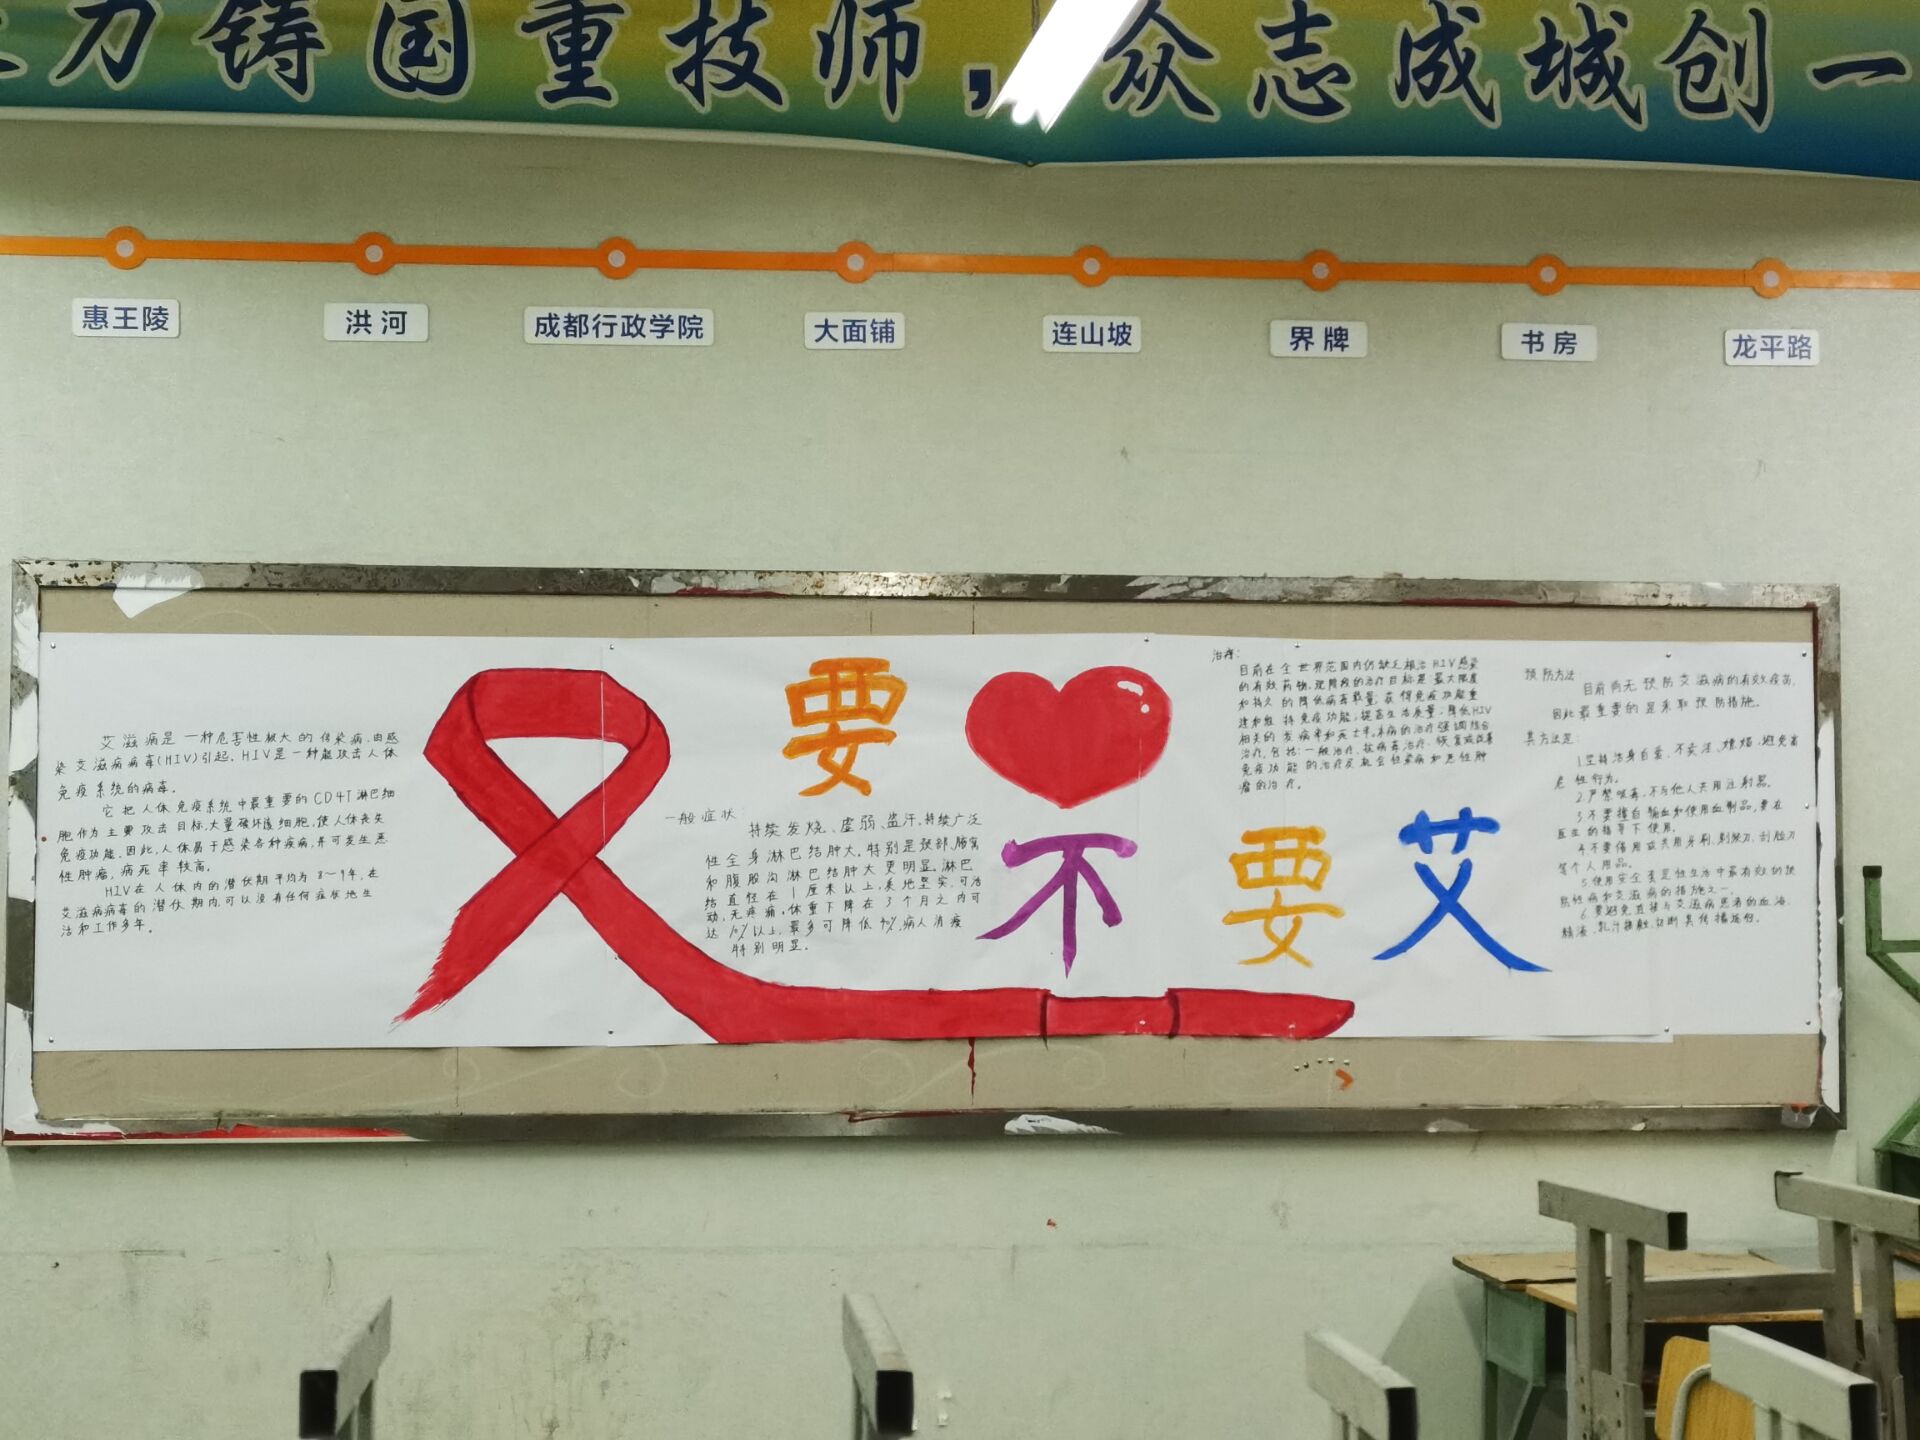 力铸国重技师，众志成城创一
惠王陵
洪河
成都行政学院
大面铺
连山坡
界牌
书房
龙平路
要
不要艾
艾滋病是一种危害性极大的传染病,由感
染艾滋病病毒(HIV)引起。HIV是一种能攻击人体
免疫系统的病毒。
它把人体免疫系统中最重要的CD4T淋巴细
胞作为主要攻击目标,大量破坏该细胞,使人体丧失
免疫功能。因此,人体易于感染各种疾病,并可发生恶
性肿瘤,病死率较高。
HIV在人体内的潜伏期平均为8~9年,在
艾滋病病毒的潜伏期内,可以没有任何症状地生
活和工作多年。
一般症状
持续发烧、虚弱、盗汗,持续广泛
性全身淋巴结肿大。特别是颈部、腋窝
和腹股沟淋巴结肿大更明显。淋巴
结直径在1厘米以上,质地坚实,可活
动,无疼痛。体重下降在3个月之内可
达10%以上,最多可降低40%,病人消瘦
特别明显。
治疗:
目前在全世界范围内仍缺乏根治HIV感染
的有效药物。现阶段的治疗目标是:最大限度
和持久的降低病毒载量;获得免疫功能重
建和维持免疫功能;提高生活质量;降低HIV
相关的发病率和死亡率。本病的治疗强调综合
治疗,包括:一般治疗、抗病毒治疗、恢复或改善
免疫功能的治疗及机会性感染和恶性肿
瘤的治疗。
预防方法
目前尚无预防艾滋病的有效疫苗,
因此最重要的是采取预防措施。
其方法是:
1.坚持洁身自爱,不卖淫、嫖娼,避免高
危性行为。
2.严禁吸毒,不与他人共用注射器。
3.不要擅自输血和使用血制品,要在
医生的指导下使用。
4.不要借用或共用牙刷、剃须刀、刮脸刀
等个人用品。
5.使用安全套是性生活中最有效的预
防性病和艾滋病的措施之一。
6.要避免直接与艾滋病患者的血液、
精液、乳汁接触,切断其传播途径。